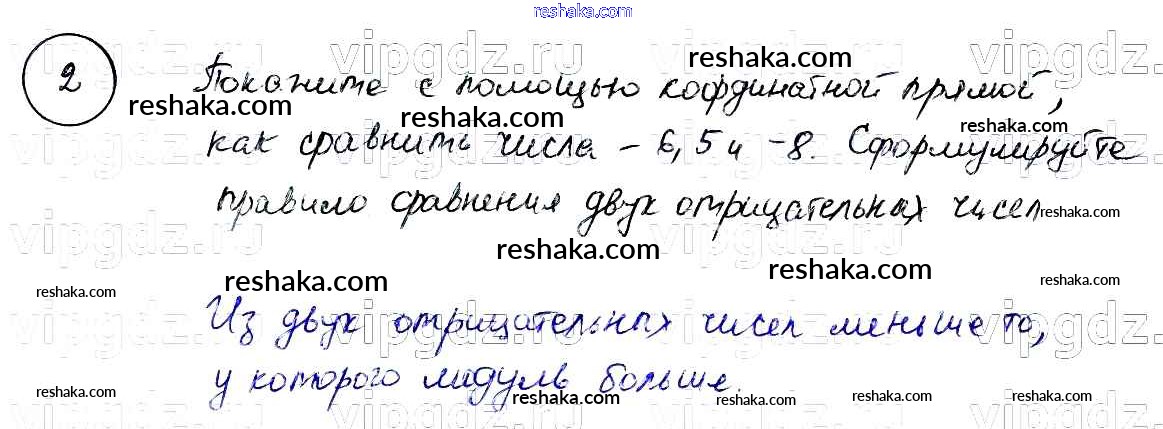 reshaka.com
vipgdz.ru vipgdz.ru vipgdz.ru vipgdz.ru
2
Покажите с помощью координатной прямой,
reshaka.com reshaka.com reshaka.com reshaka.com
как сравнить числа -6,5 и -8. Сформулируйте
правило сравнения двух отрицательных чисел
reshaka.com
vipgdz.ru vipgdz.ru vipgdz.ru vipgdz.ru
reshaka.com reshaka.com reshaka.com
reshaka.com reshaka.com reshaka.com
Из двух отрицательных чисел меньше то,
vipgdz.ru vipgdz.ru vipgdz.ru vipgdz.ru
у которого модуль больше.
reshaka.com reshaka.com reshaka.com reshaka.com
vipgdz.ru vipgdz.ru vipgdz.ru vipgdz.ru